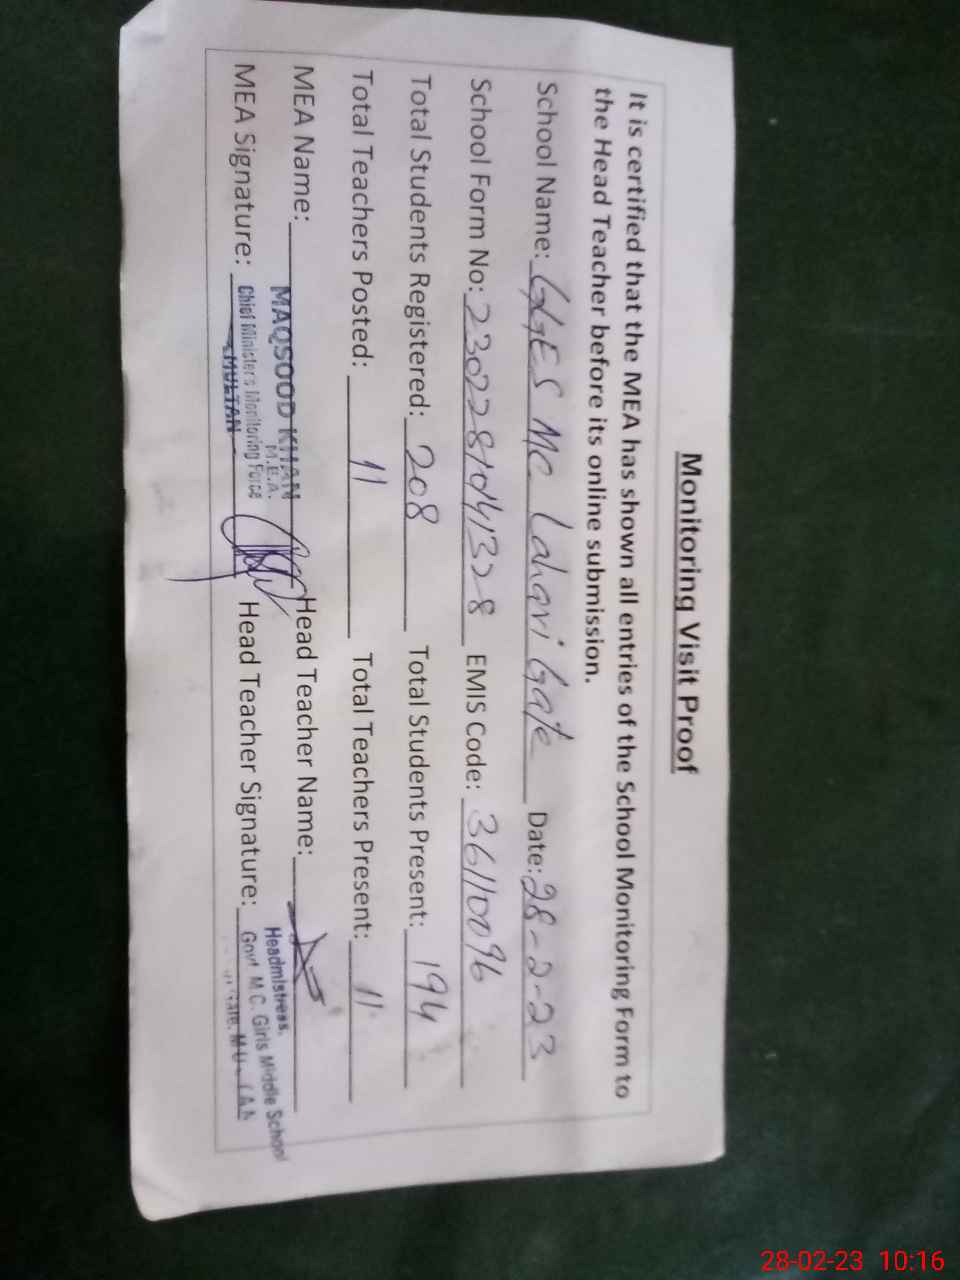 Monitoring Visit Proof
It is certified that the MEA has shown all entries of the School Monitoring Form to
the Head Teacher before its online submission.
School Name: GGES MC Lahari Gate Date: 28-2-23
School Form No: EMIS Code: 36110096
Total Students Registered: 208 Total Students Present: 194
Total Teachers Posted: 11 Total Teachers Present: 11
MEA Name: MAQSOOD KHAN Head Teacher Name:
M.E.A.
MEA Signature: Chief Minister's Monitoring Force Head Teacher Signature:
MULTAN
Headmistress.
Govt. M.C. Girls Middle School
Gate, MULTAN
28-02-23 10:16